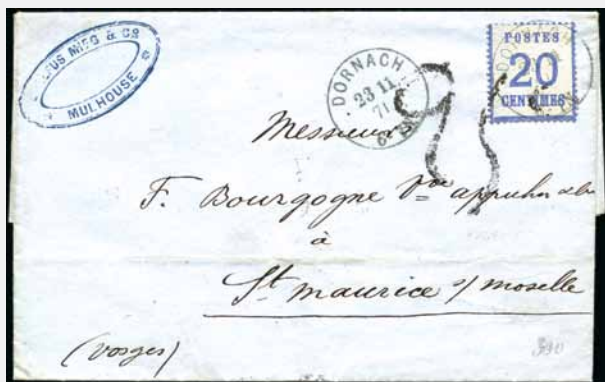 DOLLFUS MIEG & CO
MULHOUSE
DORNACH
23 11
71
POSTES
20
CENTIMES
25
Messieurs
F. Bourgogne Vve
à
St maurice s/ moselle
(Vosges)